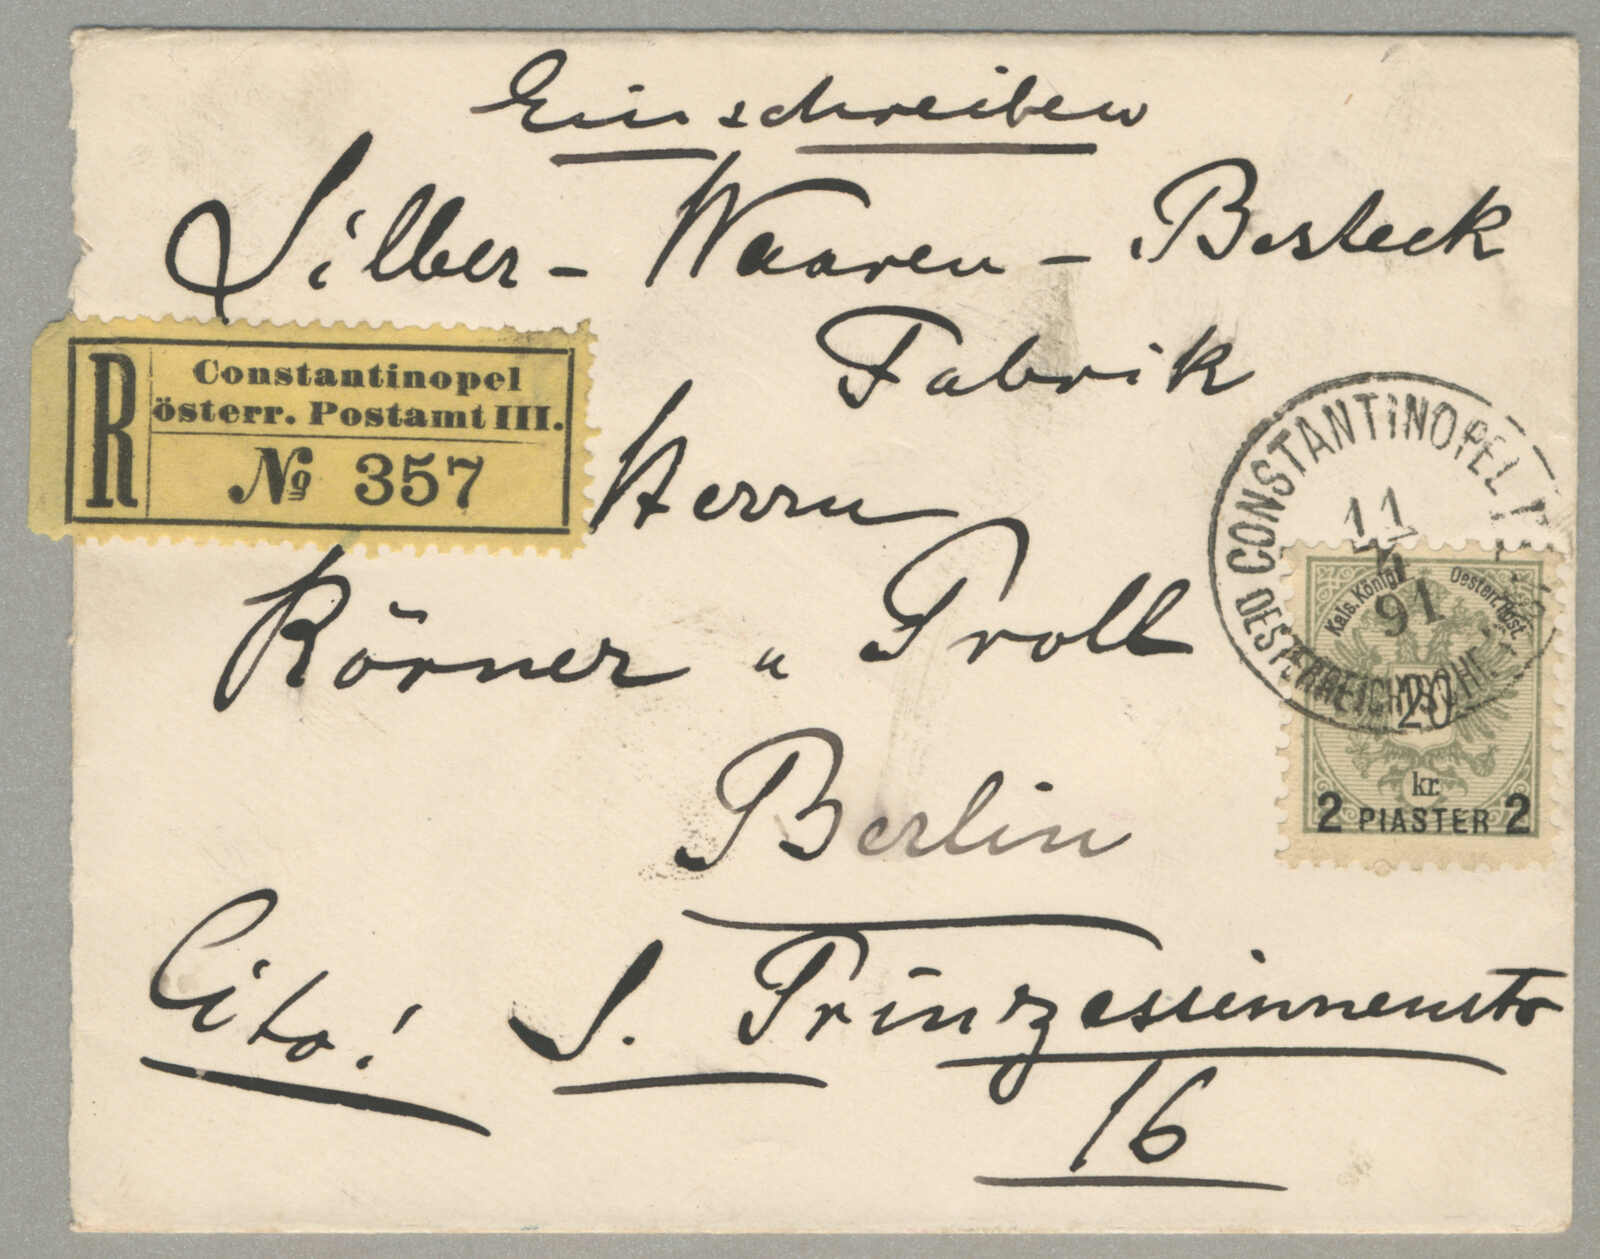 Einschreiben
Silber-Waaren-Besteck
Fabrik
R
Constantinopel
österr. Postamt III.
№ 357
Herrn
Körner u Proll
Berlin
Cito! S. Prinzessinnenstr
16
CONSTANTINOPEL
11
91
OESTERREICHISCHE
Kais. König. Oesterr. Post.
20
kr.
2 PIASTER 2